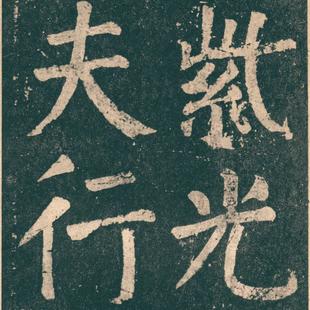 紫光
夫行